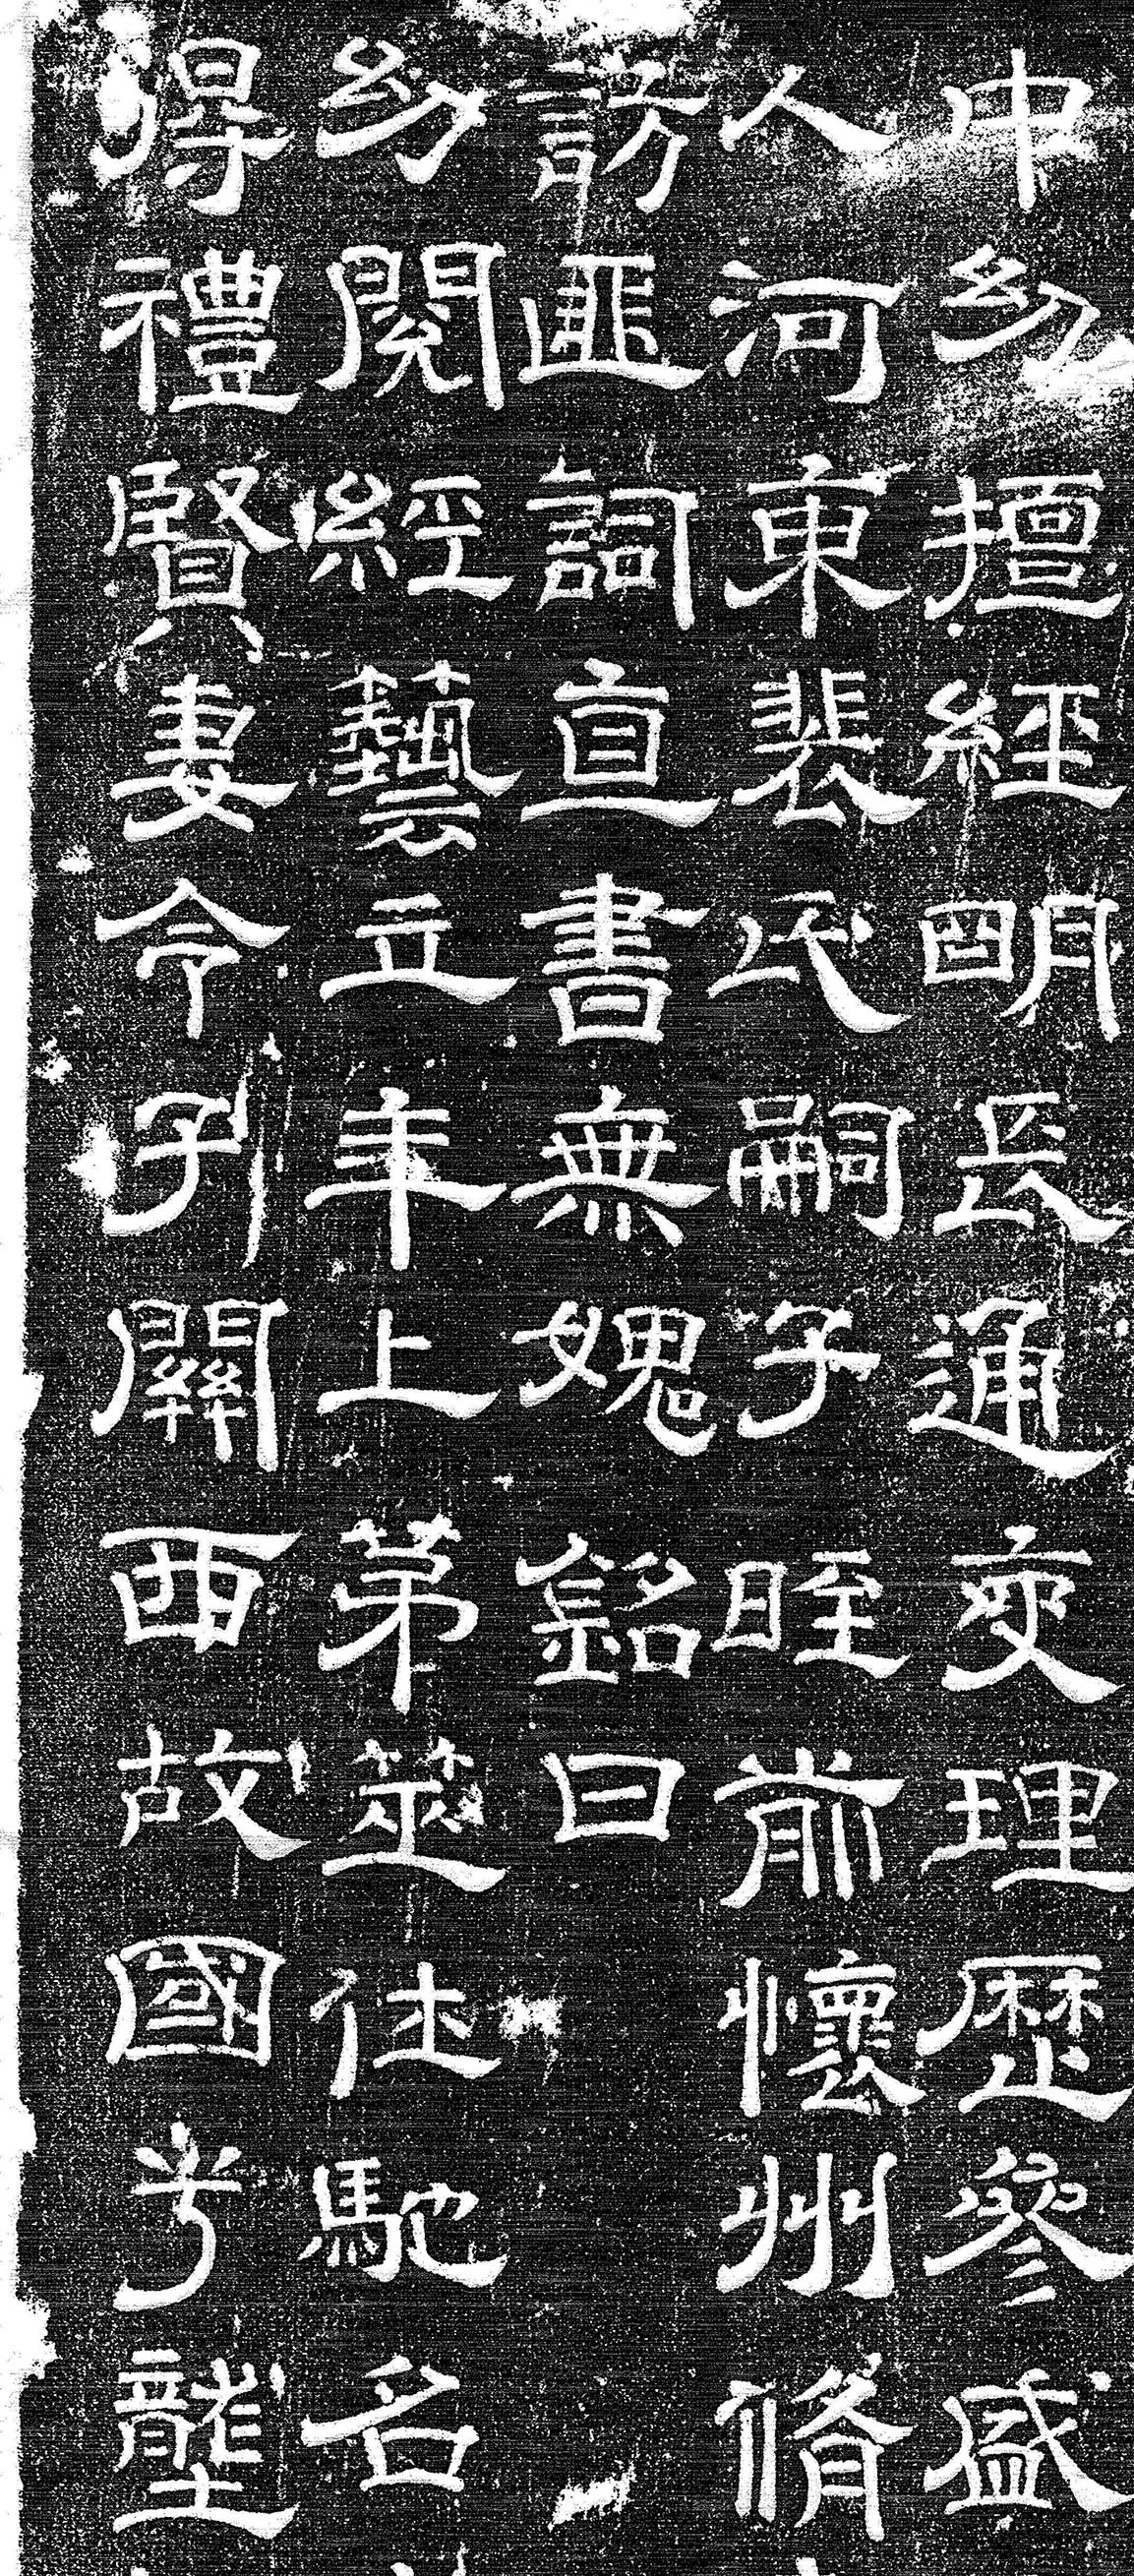 中幼擅經明長通交理歷參盛
人河東裴氏嗣子晊前懷州脩
訪匪詞直書無媿銘曰
幼閱經藝立年上第筮仕馳名
得禮賢妻令子關西故國考龏